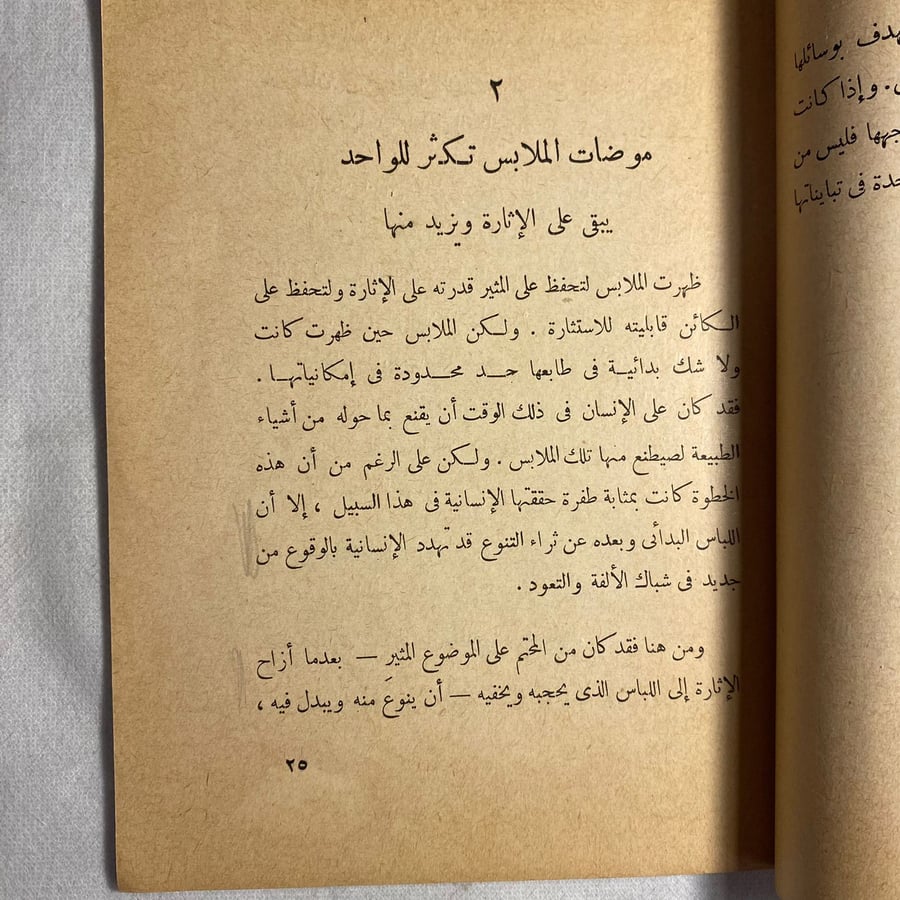 ٢
موضات الملابس تكثر للواحد
يبقى على الإثارة ويزيد منها
ظهرت الملابس لتحفظ على المثير قدرته على الإثارة ولتحفظ على
الكائن قابليته للاستثارة . ولكن الملابس حين ظهرت كانت
ولا شك بدائية فى طابعها حد محدودة فى إمكانياتها .
فقد كان على الإنسان فى ذلك الوقت أن يقنع بما حوله من أشياء
الطبيعة لصيطنع منها تلك الملابس . ولكن على الرغم من أن هذه
الخطوة كانت بمثابة طفرة حققتها الإنسانية فى هذا السبيل ، إلا أن
اللباس البدائى وبعده عن ثراء التنوع قد تهدد الإنسانية بالوقوع من
جديد فى شباك الألفة والتعود .
ومن هنا فقد كان من المحتم على الموضوع المثير — بعدما أزاح
الإثارة إلى اللباس الذى يحجبه ويخفيه — أن ينوعَ منه ويبدل فيه ،
٢٥
بوسائلها
. وإذا كانت
فليس من
فى تبايناتها